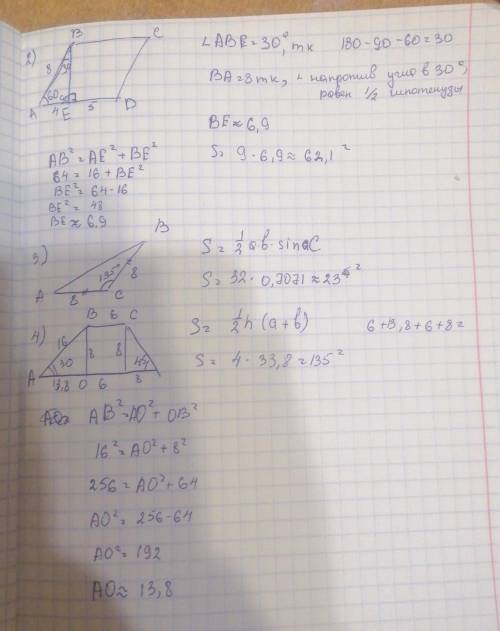 2)
B
C
8
30
60
90
A
4
E
5
D
∠ABE = 30°, тк 180 - 90 - 60 = 30
напротив угла в 30°,
равен 1/2 гипотенузы
BE ≈ 6,9
S = 9 · 6,9 ≈ 62,1²
AB² = AE² + BE²
64 = 16 + BE²
BE² = 64 - 16
BE² = 48
BE ≈ 6,9
3)
B
135°
8
A
8
C
S = 1/2 ab · sin C
S = 32 · 0,7071 ≈ 23²
4)
B 6 C
16
8
8
30
45
A
13,8 O 6 8
S = 1/2 h (a + b)
6 + 13,8 + 6 + 8 =
S = 4 · 33,8 = 135²
AB² = AO² + OB²
16² = AO² + 8²
256 = AO² + 64
AO² = 256 - 64
AO² = 192
AO ≈ 13,8